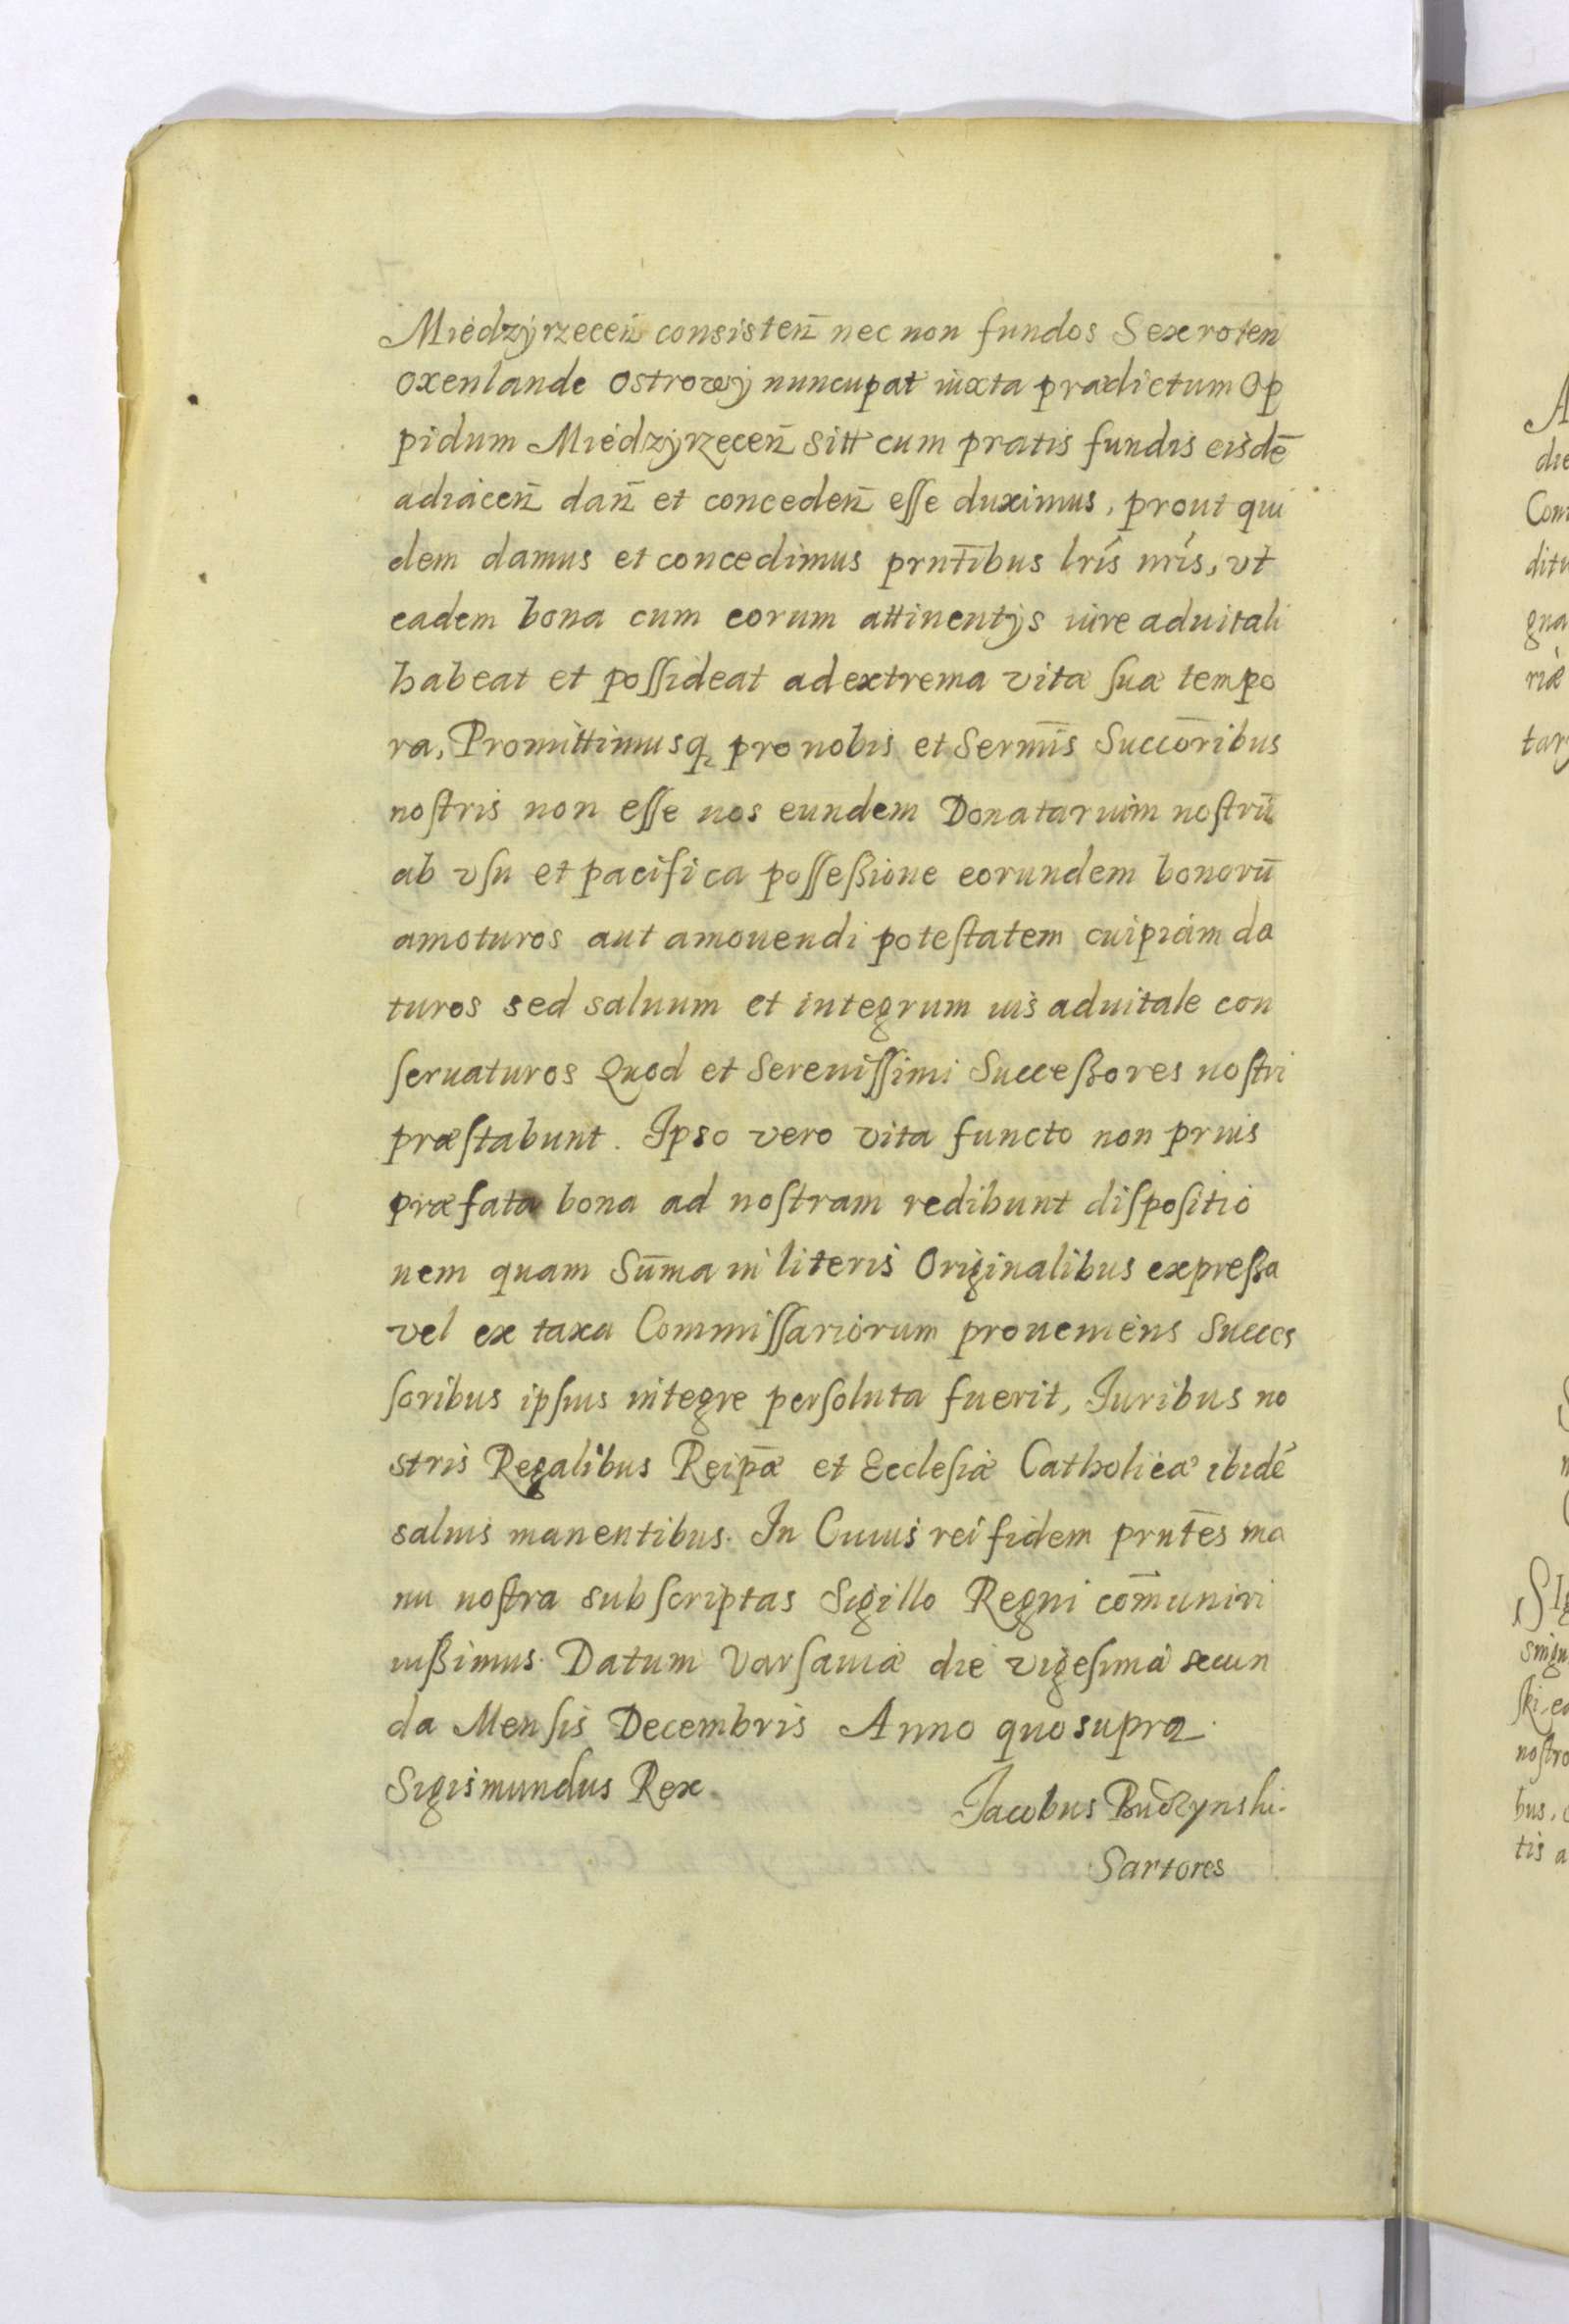 Miedzyrzeceñ consisteñ nec non fundos Sex roten
oxenlande ostrowÿ nuncupat iuxta prædictum Op
pidum Miedzÿrzeceñ sitt cum pratis fundis eisdē
adiaceñ dañ et concedeñ eſſe duximus, prout qui
dem damus et concedimus prnt̄ibus lrís nrís, vt
eadem bona cum eorum attinentÿs iure aduitali
habeat et poſſideat ad extrema vitæ ſuæ tempo
ra, Promittimusq; pro nobis et Serm̄is Succōribus
noſtris non eſſe nos eundem Donatarium noſtrū
ab vſu et pacifica poſſeßione eorundem bonorū
amoturos aut amouendi poteſtatem cuipiam da
turos sed saluum et integrum ius aduitale con
ſeruaturos Quod et Sereniſſimi Succeßores noſtri
præſtabunt. Ipso vero vita functo non prius
præfata bona ad noſtram redibunt diſpoſitio
nem quam Sūma in literis Originalibus expreßa
vel ex taxa Commiſſariorum proueniens Succes
ſoribus ipſius integre perſoluta fuerit, Iuribus no
stris Regalibus Reip̄æ et Eccleſiæ Catholicæ ibidē
saluis manentibus. In Cuius rei fidem prnt̄es ma
nu noſtra subſcriptas Sigillo Regni com̄uniri
iußimus. Datum Varſauiæ die vigeſima secun
da Menſis Decembris Anno quo supra.
Sigismundus Rex.
Jacobus Budzynski.
Sartores
A
die
Com
ditu
gna
riæ
tarÿ
SIg
ſki ea
noſtro
bus, c
tis a